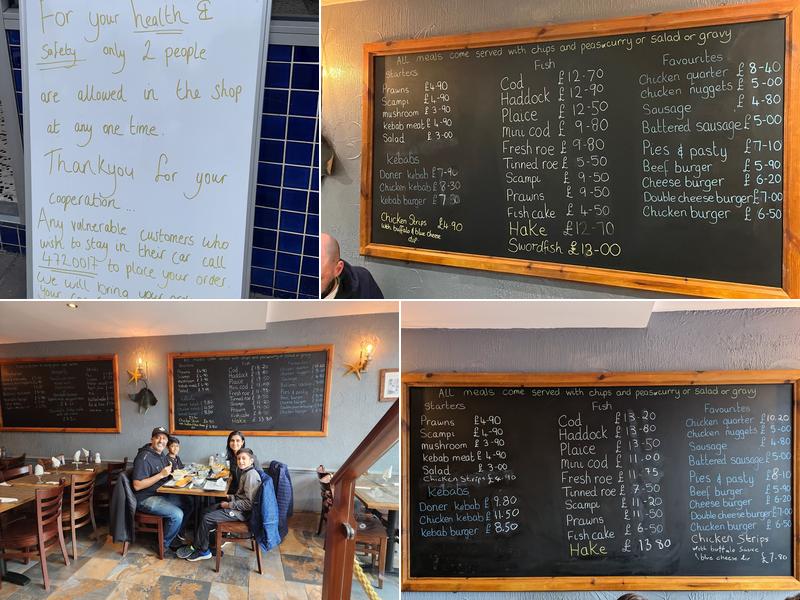 For your health &
Safety only 2 people
are allowed in the shop
at any one time.
Thankyou for your
cooperation...
Any vulnerable customers who
wish to stay in their car call
4720017 to place your order.
We will bring your order
ALL meals come served with chips and peas, curry or salad or gravy
starters
Prawns £4-90
Scampi £4-90
mushroom £3-90
kebab meat £4-90
Salad £3-00
Kebabs
Doner kebab £7-90
Chicken kebab £8-30
kebab burger £7-30
Chicken Strips £4.90
with buffalo & blue cheese
dip
Fish
Cod £12-70
Haddock £12-90
Plaice £12-50
Mini cod £9-80
Fresh roe £9-80
Tinned roe £5-50
Scampi £9-50
Prawns £9-50
Fish cake £4-50
Hake £12-70
Swordfish £13-00
Favourites
Chicken quarter £8-40
chicken nuggets £5-00
Sausage £4-80
Battered sausage £5-00
Pies & pasty £7-10
Beef burger £5-90
Cheese burger £6-20
Double cheese burger £7-00
Chicken burger £6-50
Fish
Cod
Haddock
Plaice
Mini cod
ALL meals come served with chips and peas, curry or salad or gravy
starters
Prawns £4-90
Scampi £4-90
mushroom £3-90
kebab meat £4-90
Salad £3-00
Chicken Strips £4.90
Kebabs
Doner kebab £9.80
Chicken kebab £11.50
kebab burger £8.50
Fish
Cod £13.20
Haddock £13-80
Plaice £13-50
Mini cod £11.00
Fresh roe £11-75
Tinned roe £7-50
Scampi £11-20
Prawns £11-50
Fish cake £6-50
Hake £13 80
Favourites
Chicken quarter £10.20
Chicken nuggets £5-00
Sausage £4-80
Battered sausage £5-00
Pies & pasty £8-10
Beef burger £5-90
Cheese burger £6-20
Double cheese burger £7-00
Chicken burger £6-50
Chicken Strips
with buffalo sauce
& blue cheese dip £7-80